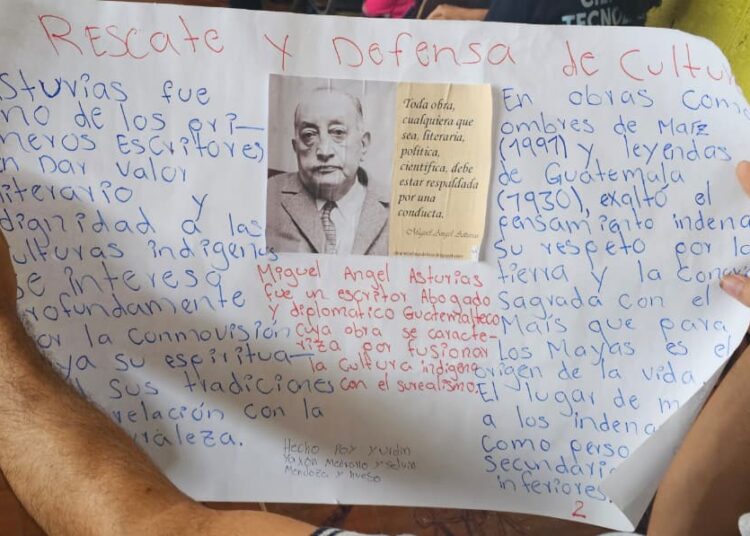 RESCate Y Defensa de Cultu
sturias fue
no de los pri-
meros Escritores
n Dar Valor
iterario y
dignidad a las
ulturas indigenas
e interesa
rofundamente
or la conmovisión
ya su espiritua-
sus tradiciones
relación con la
uraleza.
Toda obra,
cualquiera que
sea, literaria,
política,
científica, debe
estar respaldada
por una
conducta.
Miguel Ángel Asturias
Miguel Angel Asturias
fue un escritor Abogado
y diplomatico Guatemalteco
cuya obra se caracte-
riza por fusionar
la cultura indigena
con el surealismo.
Hecho por
Mendoza y
En obras com
ombres de Maíz
y leyendas
de Guatemala
(1930), exaltó el
pensamiento indena
su respeto por la
tierra y la
Sagrada con el
Maís que para
los Mayas es el
origen de la vida
El lugar de m
a los indena
como perso
secundari
inferiores.
2
TECNOL